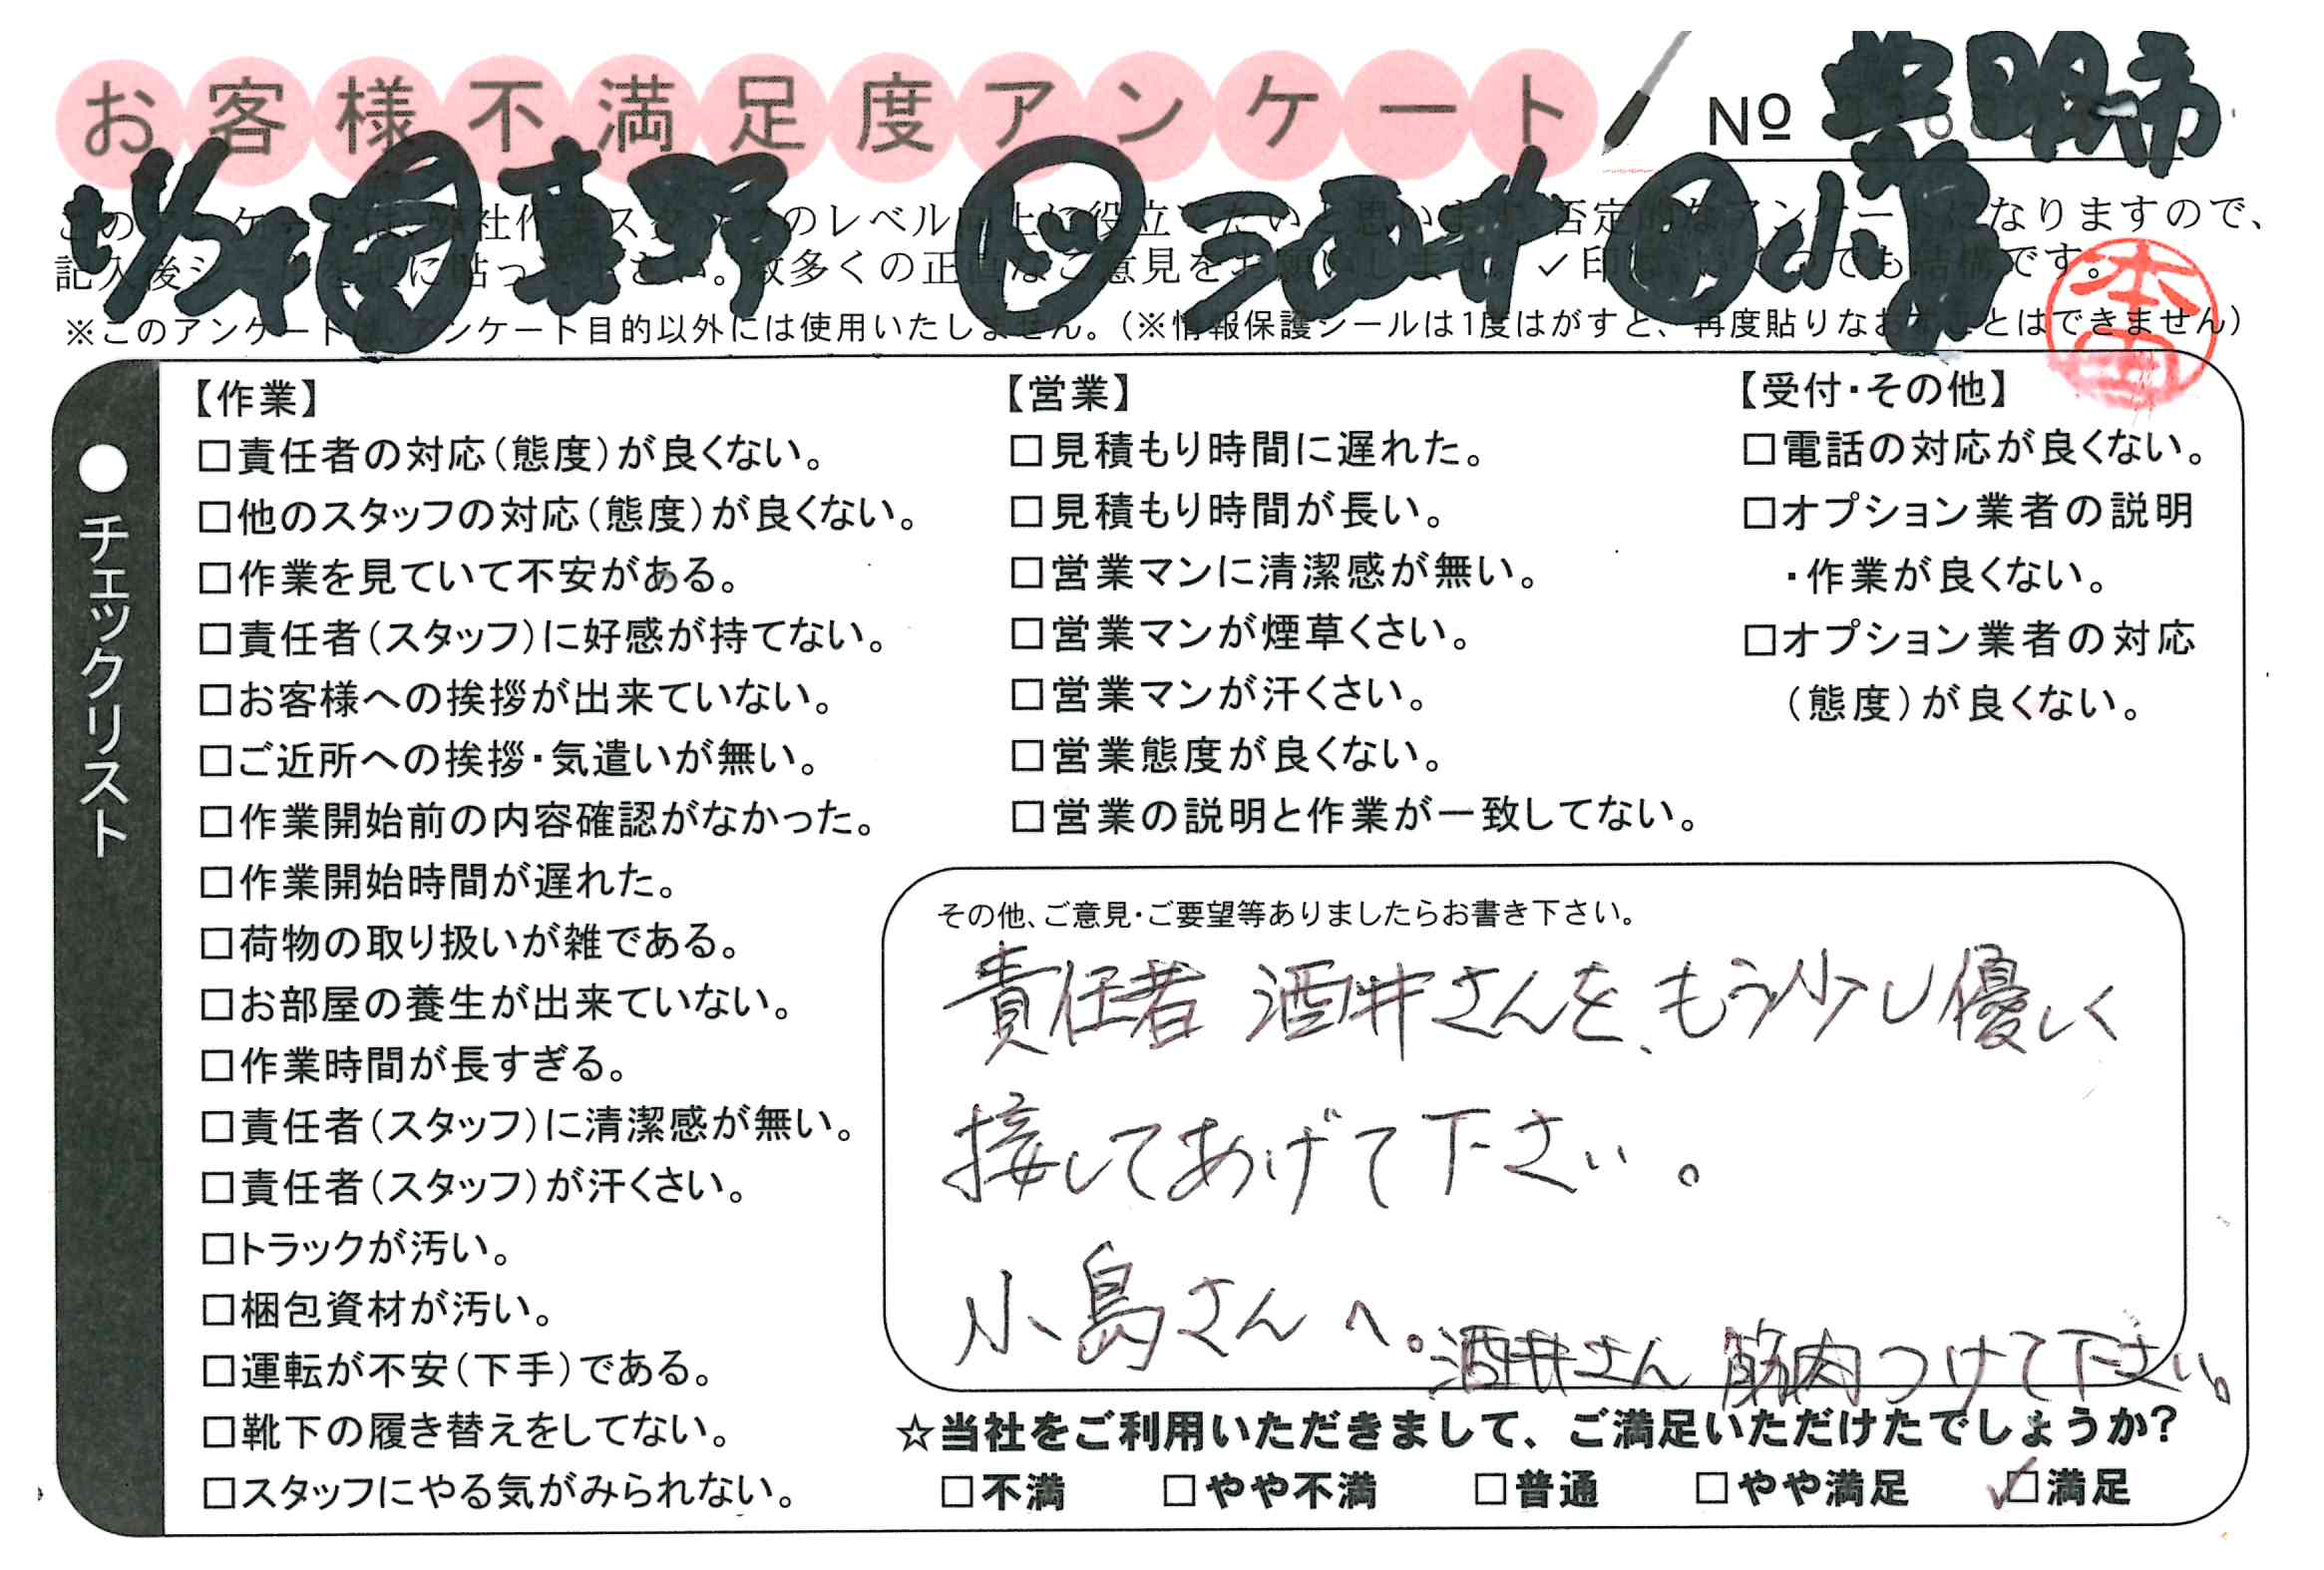 お客様不満足度アンケート
No 豊明市
11/24 営 草野 ト 酒井 小島
※このアンケート アンケート目的以外には使用いたしません。（※情報保護シールは1度はがすと、再度貼りなおすことはできません）
本田
●チェックリスト
【作業】
□責任者の対応（態度）が良くない。
□他のスタッフの対応（態度）が良くない。
□作業を見ていて不安がある。
□責任者（スタッフ）に好感が持てない。
□お客様への挨拶が出来ていない。
□ご近所への挨拶・気遣いが無い。
□作業開始前の内容確認がなかった。
□作業開始時間が遅れた。
□荷物の取り扱いが雑である。
□お部屋の養生が出来ていない。
□作業時間が長すぎる。
□責任者（スタッフ）に清潔感が無い。
□責任者（スタッフ）が汗くさい。
□トラックが汚い。
□梱包資材が汚い。
□運転が不安（下手）である。
□靴下の履き替えをしてない。
□スタッフにやる気がみられない。
【営業】
□見積もり時間に遅れた。
□見積もり時間が長い。
□営業マンに清潔感が無い。
□営業マンが煙草くさい。
□営業マンが汗くさい。
□営業態度が良くない。
□営業の説明と作業が一致してない。
【受付・その他】
□電話の対応が良くない。
□オプション業者の説明
・作業が良くない。
□オプション業者の対応
（態度）が良くない。
その他、ご意見・ご要望等ありましたらお書き下さい。
責任者 酒井さんを、もう少し優しく
接してあげて下さい。
小島さんへ。酒井さん 筋肉つけて下さい。
☆当社をご利用いただきまして、ご満足いただけたでしょうか？
□不満 □やや不満 □普通 □やや満足 ☑満足